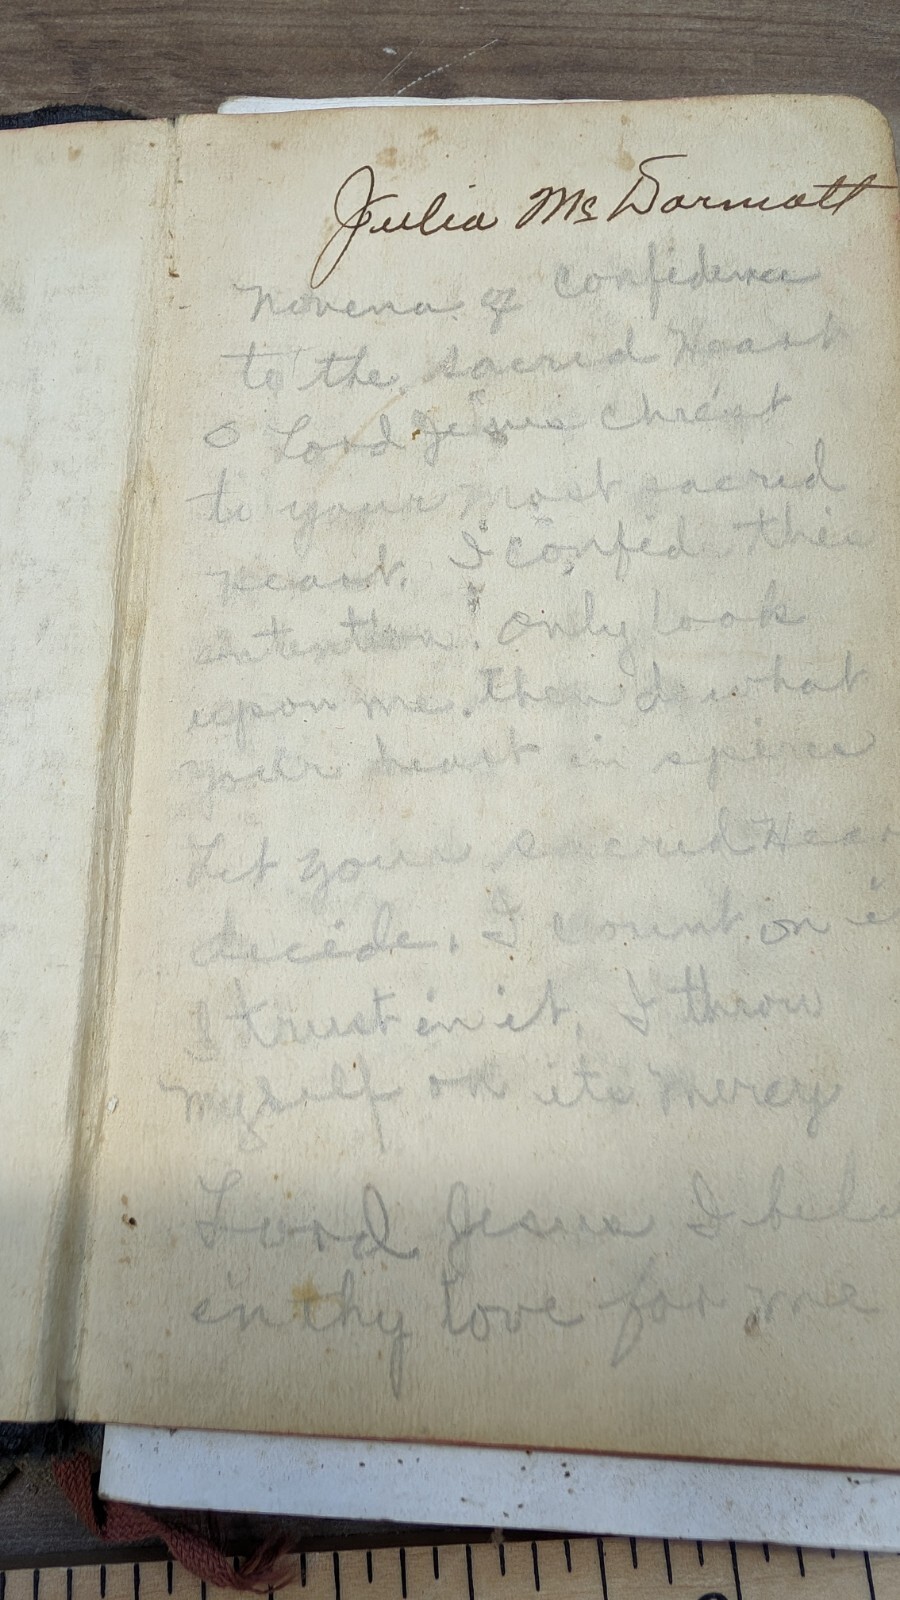 Julia McDarmott
Novena of confidence
to the sacred Heart
O Lord Jesus Christ
to your most sacred
Heart. I confide this
intention. Only look
upon me. then do what
your heart in spires
Let your sacred Hear
decide. I count on i
I trust in it, I throw
myself on its mercy
Lord Jesus I bel
in thy love for me